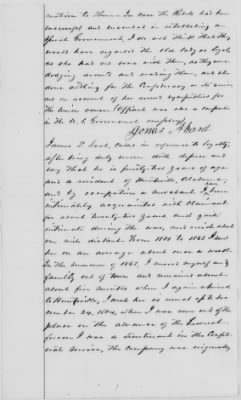 mation to them. In case the Rebels had been
successful and succeeded in establishing a
Government, I do not think that they
would have regarded the old lady as loyal
as she had no son with them, as they were
dodging around and evading them, and she
done nothing for the Confederacy or its cause
and on account of her union sympathies for
the union cause (Officer) was a carpenter
in the U.S. Government employ)
Jonas
James T. called in reference to loyalty
after being duly sworn doth depose and
say that he is forty two years of age
and a resident of Huntsville, Alabama,
and by occupation a Merchant, I have been
intimately acquainted with Claimant
for about twenty five years, and quite
intimate during the war, and resided about
one mile distant from 1861 to 1862 I saw
her on an average about once a week.
In the summer of 1862, I moved myself and
family out of town and remained about
about five months when I again returned
to Huntsville, I saw her as usual up to
24, 1864, when I was run out of the
place on the advance of the Federal
forces. I was a Lieutenant in the Confed
erate service, the company was originally